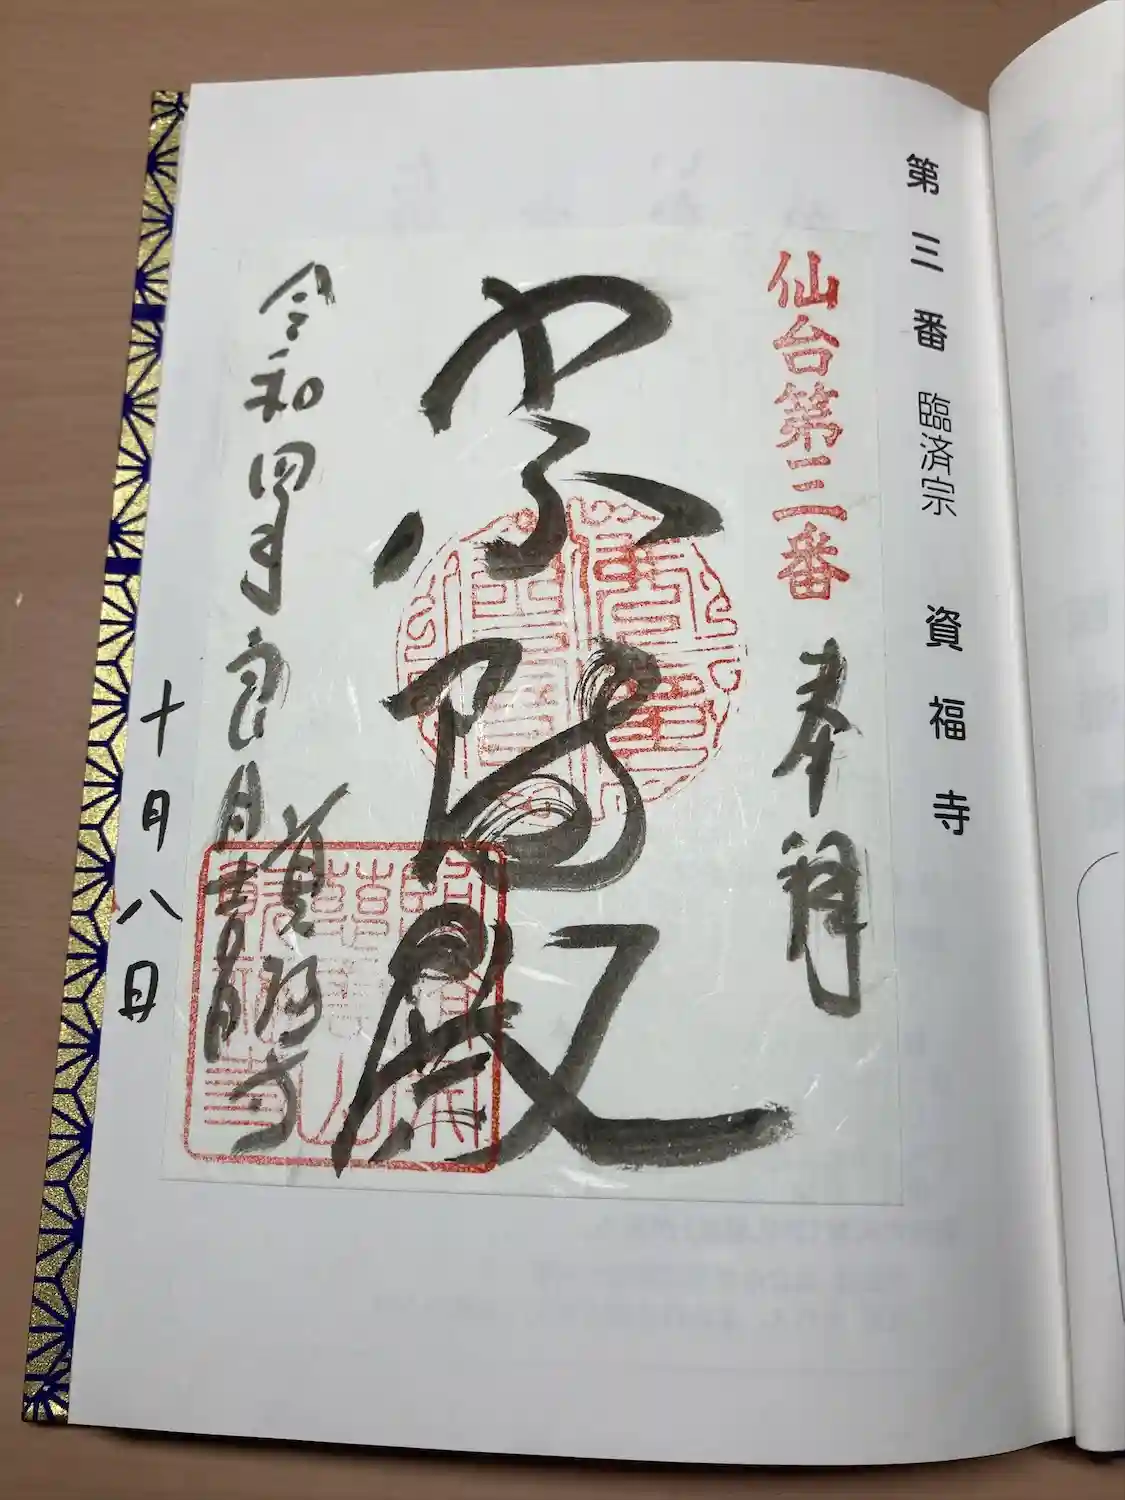 第三番 臨済宗 資福寺
仙台第三番
奉拝
殿
令和四年良月吉日
資福寺
十月八日